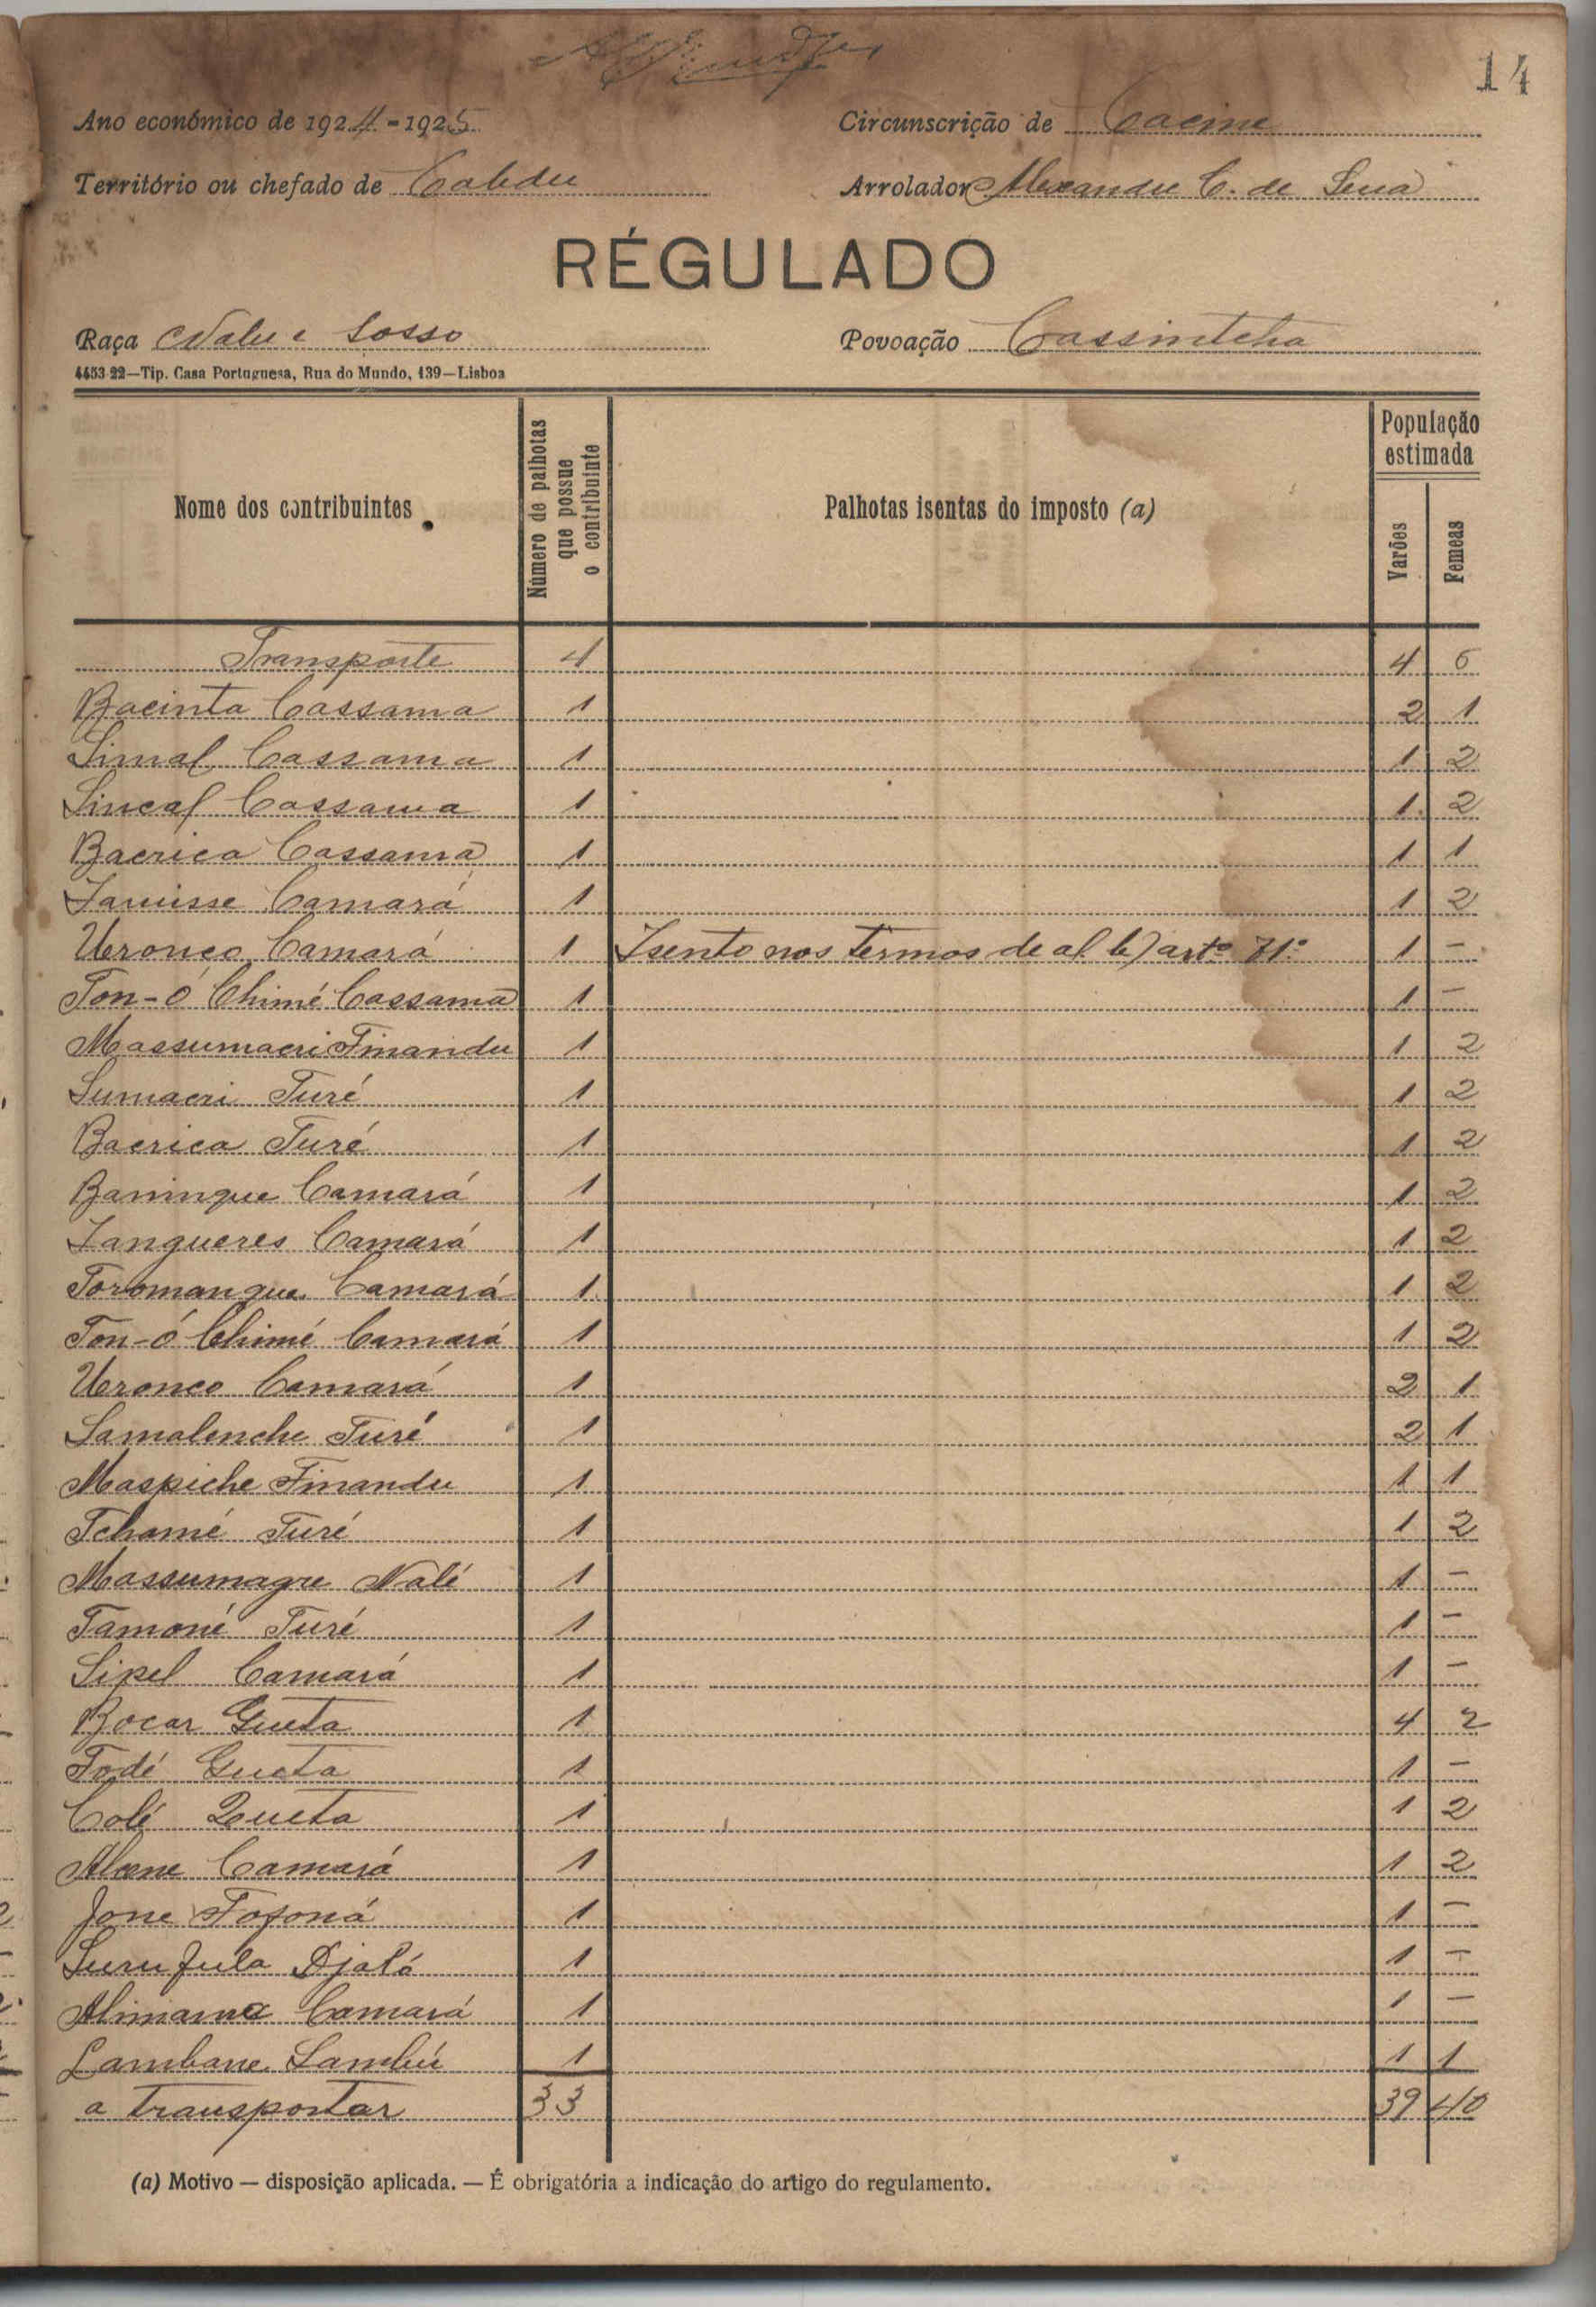 14
Ano económico de 1924-1925 Circunscrição de Cacine
Território ou chefado de Cabedu Arrolador Alexandre C. de Sena
RÉGULADO
Raça Nalu e Sosso Povoação Cassintcha
4453-22—Tip. Casa Portuguesa, Rua do Mundo, 139—Lisboa
Nome dos contribuintes Número de palhotas que possue o contribuinte Palhotas isentas do imposto (a) População estimada Varões Femeas
Transporte 4 4 6
Bacinta Cassama 1 2 1
Simal Cassama 1 1 2
Sincal Cassama 1 1 2
Bacrica Cassama 1 1 1
Januisse Camará 1 1 2
Uronco Camará 1 Isento nos termos de al. b) artº 71º 1 –
Ton-ó Chimé Cassama 1 1 –
Massumacri Finandu 1 1 2
Sumacri Turé 1 1 2
Bacrica Turé 1 1 2
Baninque Camará 1 1 2
Jangueres Camará 1 1 2
Toromanque Camará 1 1 2
Ton-ó Chimé Camará 1 1 2
Uronco Camará 1 2 1
Samalenche Turé 1 2 1
Maspiche Finandu 1 1 1
Tchamé Turé 1 1 2
Massumagre Nalé 1 1 –
Tamoné Turé 1 1 –
Sipel Camará 1 1 –
Bocar Gueta 1 4 2
Fodé Gueta 1 1 –
Colé Queta 1 1 2
Alcene Camará 1 1 2
Jone Fofoná 1 1 –
Surufula Djaló 1 1 –
Alimama Camará 1 1 –
Lambane Sambú 1 1 1
a transportar 33 39 40
(a) Motivo — disposição aplicada. — É obrigatória a indicação do artigo do regulamento.